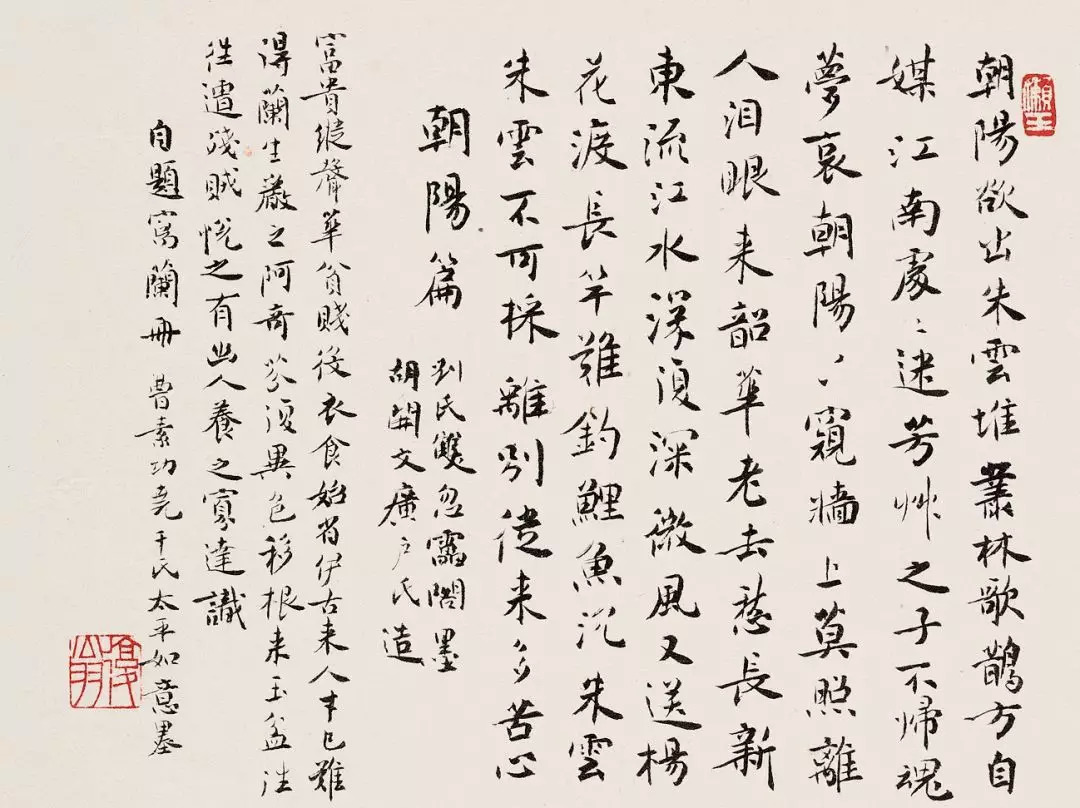 朝陽欲出朱雲堆叢林歌鵲方自
媒江南處〻迷芳艸之子不歸魂
夢哀朝陽〻窺牆上莫照離
人泪眼来韶華老去愁長新
東流江水深復深微風又送楊
花淚長竿難釣鯉魚沉朱雲
朱雲不可採離別從来多苦心
朝陽篇
劉氏雙忽靄閣墨
胡開文廣户氏造
富貴縱聲華貧賤役衣食始省伊古来人才已難
得蘭生巖之阿奇芬復異色移根来玉盆往
往遭殘賊悅之有幽人養之寡達識
自題寫蘭冊 曹素功堯千氏太平如意墨